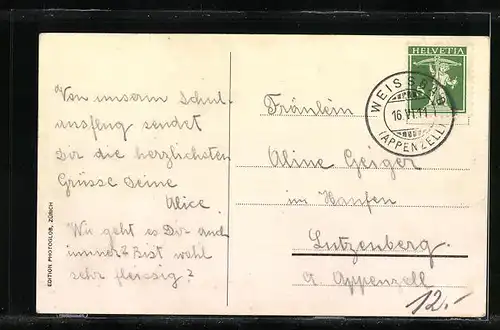 Von unserm Schul-
ausflug sendet
Dir die herzlichsten
Grüsse Deine
Alice
Wie geht es Dir auch
immer? Bist wohl
sehr fleissig?
EDITION PHOTOGLOB, ZÜRICH
HELVETIA
5
16.VI.11
(APPENZELL)
Fräulein
Aline Geiger
im Haufen
Lutzenberg.
Ct. Appenzell
12.-